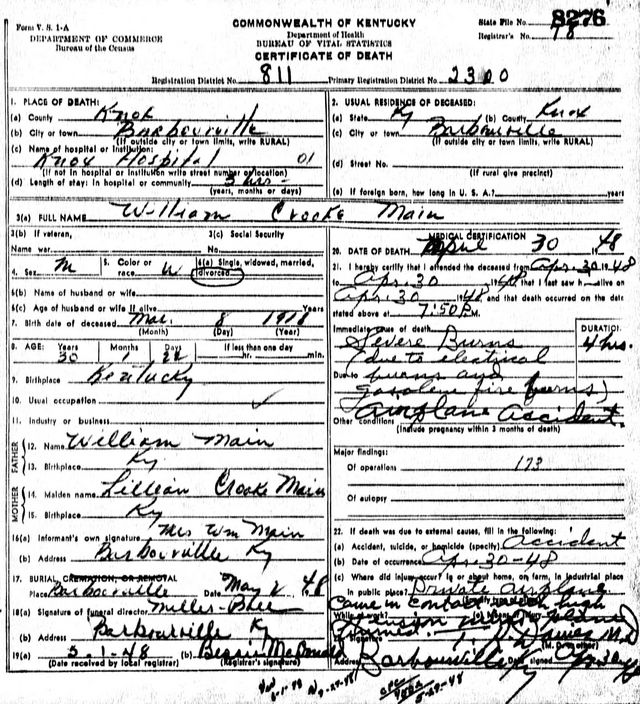 Form V. S. 1-A
DEPARTMENT OF COMMERCE
Bureau of the Census
COMMONWEALTH OF KENTUCKY
Department of Health
BUREAU OF VITAL STATISTICS
CERTIFICATE OF DEATH
State File No. 8276
Registrar's No. 78
Registration District No. 811 Primary Registration District No. 2300
1. PLACE OF DEATH:
(a) County Knox
(b) City or town Barbourville
(If outside city or town limits, write RURAL)
(c) Name of hospital or institution:
Knox Hospital 01
(If not in hospital or institution write street number or location)
(d) Length of stay: In hospital or community 3 hrs.
(years, months or days)
2. USUAL RESIDENCE OF DECEASED:
(a) State Ky (b) County Knox
(c) City or town Barbourville
(If outside city or town limits, write RURAL)
(d) Street No.
(If rural give precinct)
(e) If foreign born, how long in U. S. A.? years
3(a) FULL NAME William Crooke Main
3(b) If veteran,
Name war
3(c) Social Security
No.
4. Sex M 5. Color or race W 6(a) Single, widowed, married, divorced
6(b) Name of husband or wife
6(c) Age of husband or wife if alive Years
7. Birth date of deceased Mar. 8 1918
(Month) (Day) (Year)
8. AGE: Years Months Days If less than one day
30 1 22 hr. min.
9. Birthplace Kentucky
10. Usual occupation
11. Industry or business
FATHER
12. Name William Main
13. Birthplace Ky
MOTHER
14. Maiden name Lillian Crooke Main
15. Birthplace Ky
16(a) Informant's own signature Mrs Wm Main
(b) Address Barbourville Ky
17. BURIAL, CREMATION, OR REMOVAL
Place Barbourville Date May 2 48
18(a) Signature of funeral director Miller-
(b) Address Barbourville Ky
19(a) 5-1-48 (b) Bessie McDonald
(Date received by local registrar) (Registrar's signature)
MEDICAL CERTIFICATION
20. DATE OF DEATH April 30 1948
21. I hereby certify that I attended the deceased from Apr. 30 1948
to Apr. 30 1948 that I last saw h alive on
Apr. 30 1948 and that death occurred on the date
stated above at 7:50 P.M.
Immediate cause of death DURATION
Severe Burns 4 hrs.
(due to electrical
Due to burns and
gasoline fire burns)
Airplane Accident.
Other conditions
(Include pregnancy within 3 months of death)
Major findings:
Of operations 173
Of autopsy
22. If death was due to external causes, fill in the following:
(a) Accident, suicide, or homicide (specify) Accident
(b) Date of occurrence Apr-30-48
(c) Where did injury occur? In or about home, on farm, in industrial place
in public place? Private airplane
Came in contact with high
tension
M.D.
Address Barbourville Ky